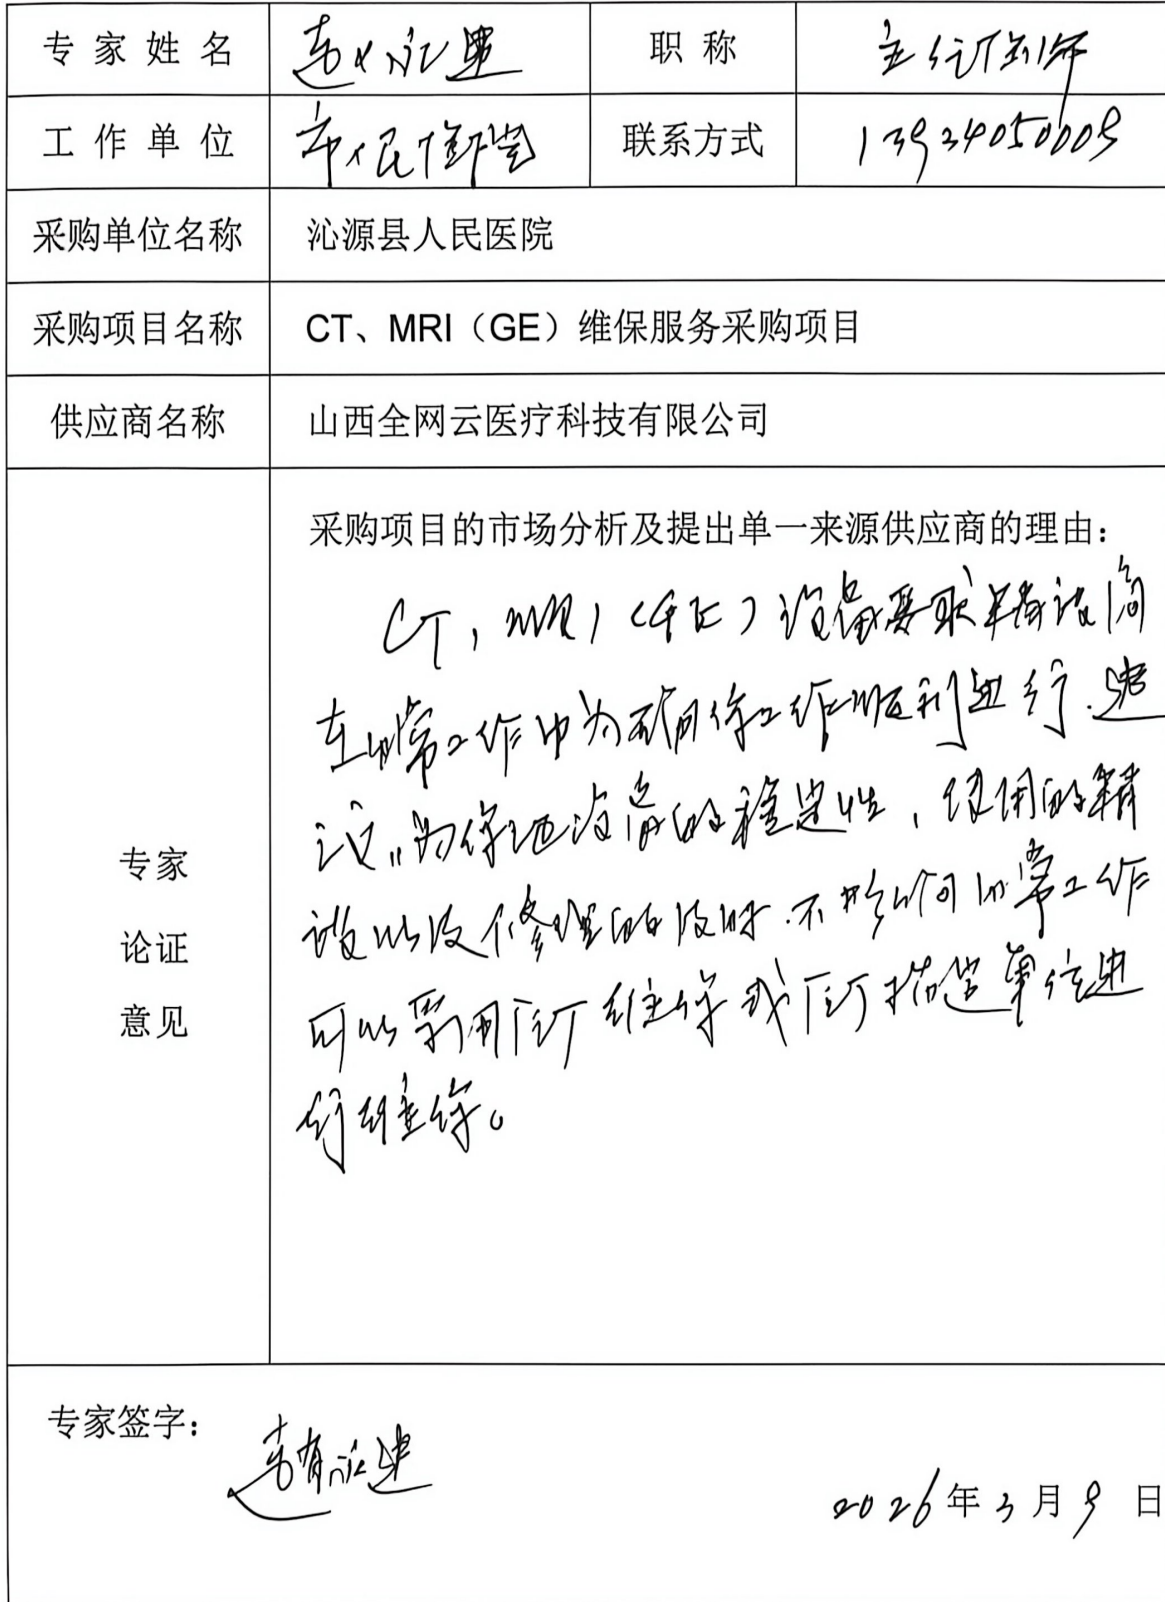 专家姓名 赵永建 职称 主任医师
工作单位 市人民医院 联系方式 13934050009
采购单位名称 沁源县人民医院
采购项目名称 CT、MRI（GE）维保服务采购项目
供应商名称 山西全网云医疗科技有限公司
专家论证意见
采购项目的市场分析及提出单一来源供应商的理由：
CT，MRI（GE）设备要求精
在日常工作中为确保工作顺利进行.建
议，为保证设备的稳定性，使用的精
以及修理的及时.不影响日常工作
可以采用厂家维保或厂家单位进
行维保。
专家签字： 赵永建
2026年3月9日